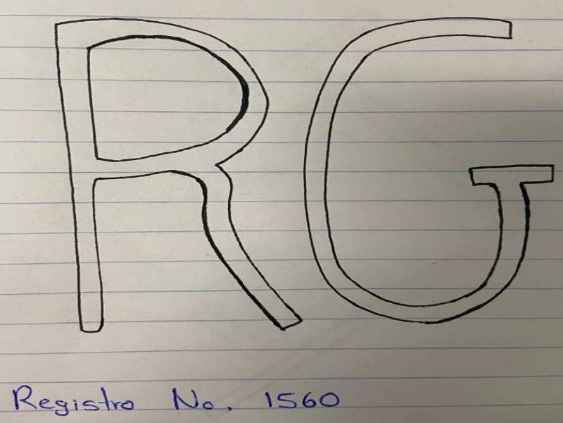 RG
Registro No. 1560